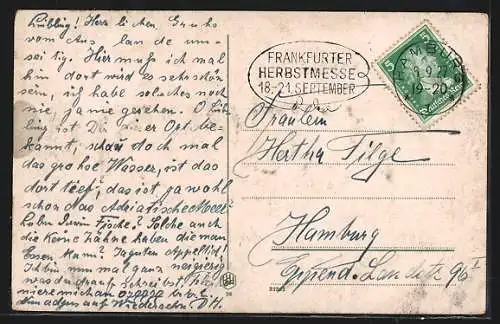 Liebling! Herzlichen Gruhs
vom Aus lande um-
seitig. Hier muß ich mal
hin dort wird es sehr schön
sein, ich habe solches noch
nie, ja nie gesehen. O Lieb
ling ist Dir dieser Ort be-
kannt, schau doch mal
das grohse Wasser, ist das
dort teef, das ist ja wohl
schon das Adriatische Meer?
haben Fische? Solche auch
die keine Zähne haben die man
Essen kann? Appetitd!
Ich bin nun mal ganz neigierig
was darauf schreibst,
bis
Wiedersehn. DH.
FRANKFURTER
HERBSTMESSE
18-21.SEPTEMBER
HAMBURG
9.9.27
19-20
5
5
Deutsches Reich
Fräulein
Hertha Filge
Hamburg
Eppend. Landstr. 96 I